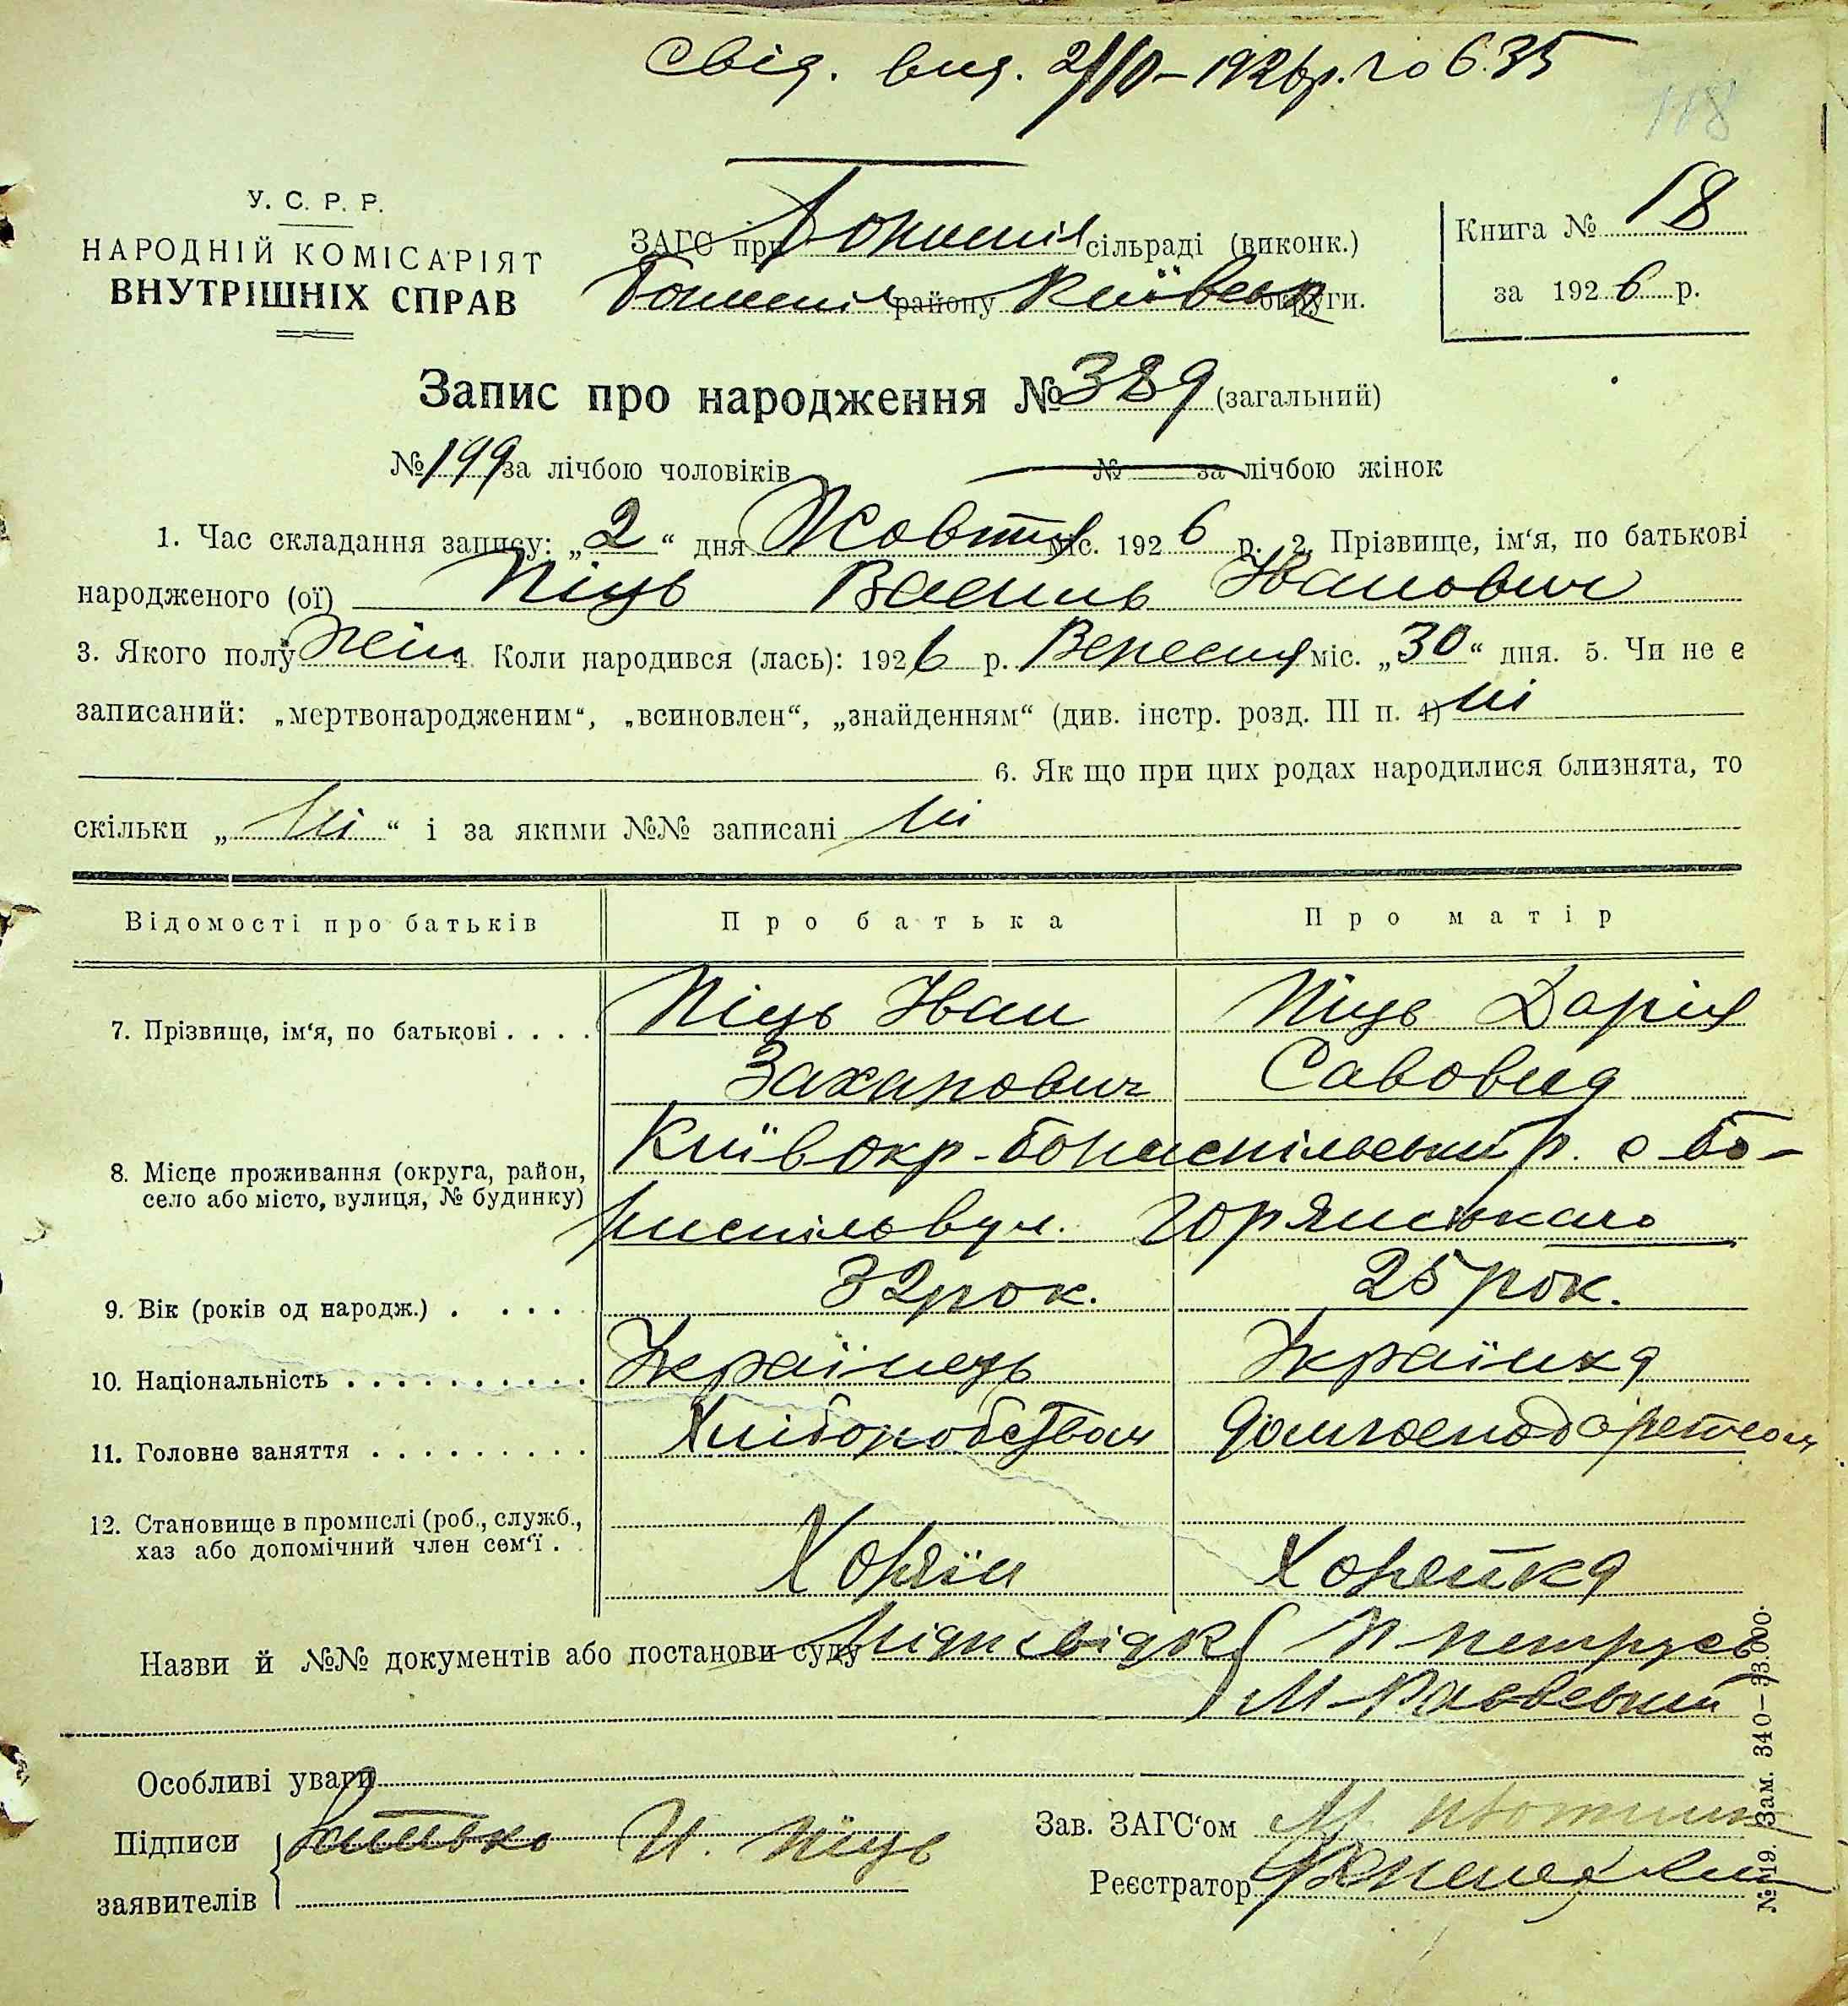 свід. вид. 2/X–1926р. № 635
118
У. С. Р. Р.
НАРОДНІЙ КОМІСАРІЯТ
ВНУТРІШНІХ СПРАВ
ЗАГС при Бориспіл сільраді (виконк.)
Бориспіл району Київськ округи.
Книга № 18
за 1926 р.
Запис про народження № 389 (загальний)
№ 199 за лічбою чоловіків № за лічбою жінок
1. Час складання запису: „2“ дня Жовтня міс. 1926 р. 2. Прізвище, ім‘я, по батькові
народженого (ої) Піць Василь Іванович
3. Якого полу чол 4. Коли народився (лась): 1926 р. Вересня міс. „30“ дня. 5. Чи не є
записаний: „мертвонародженим“, „всиновлен“, „знайденням“ (див. інстр. розд. III п. 4) ні
6. Як що при цих родах народилися близнята, то
скільки „ні“ і за якими №№ записані ні
Відомості про батьків Про батька Про матір
7. Прізвище, ім‘я, по батькові . . . . Піць Іван Піць Дарія
Захарович Савовна
8. Місце проживання (округа, район, Київ окр-бориспільський р. с бо-
село або місто, вулиця, № будинку) риспіль вул.
9. Вік (років од народж.) . . . . 32 рок. 25 рок.
10. Національність . . . . . . . . . . Українець Українка
11. Головне заняття . . . . . . . . . Хліборобством
12. Становище в промислі (роб., служб.,
хаз або допомічний член сем‘ї . . Хозяїн Хозяйка
Назви й №№ документів або постанови суду
Особливі уваги
Підписи Батько И. Піць Зав. ЗАГС‘ом
заявителів Реєстратор
№ 19. Зам. 340–33.000.